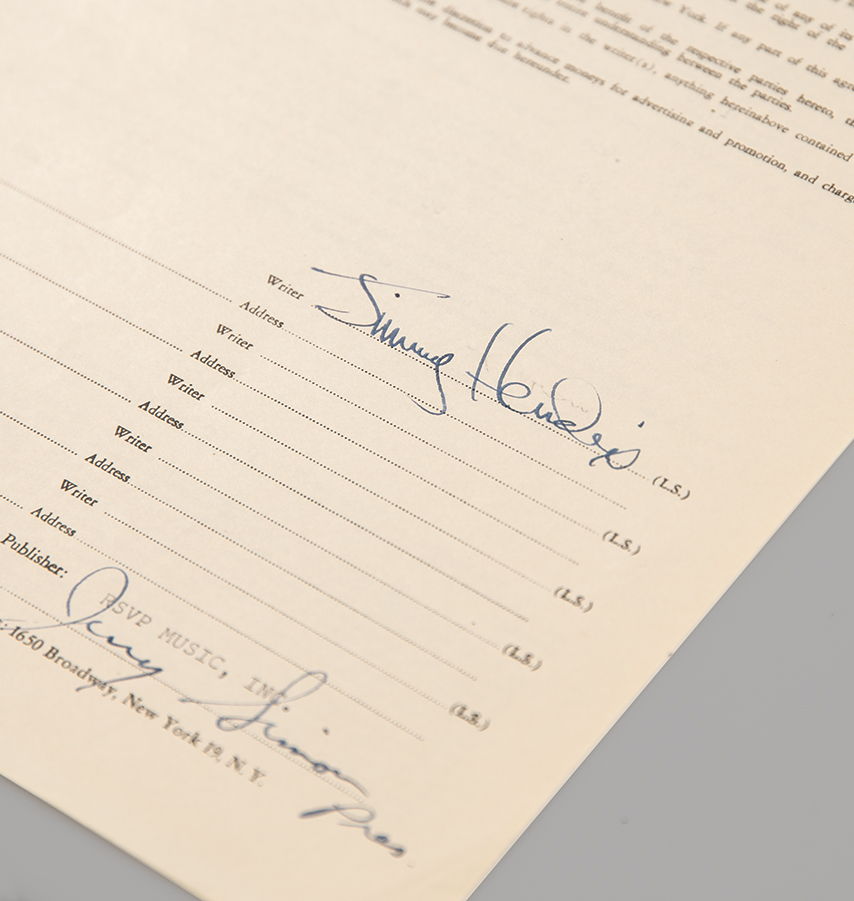 of any of its
the right of the
New York. If any part of this agree
benefit of the respective parties hereto, th
entire understanding between the parties.
rights in the writer(s), anything hereinabove contained
discretion to advance moneys for advertising and promotion, and charg
may become due hereunder.
Writer Jimmy Hendrix (L.S.)
Address
Writer (L.S.)
Address
Writer (L.S.)
Address
Writer (L.S.)
Address
Writer (L.S.)
Address
Publisher: RSVP MUSIC, INC
Jerry Simon
Pres.
: 1650 Broadway, New York 19, N. Y.